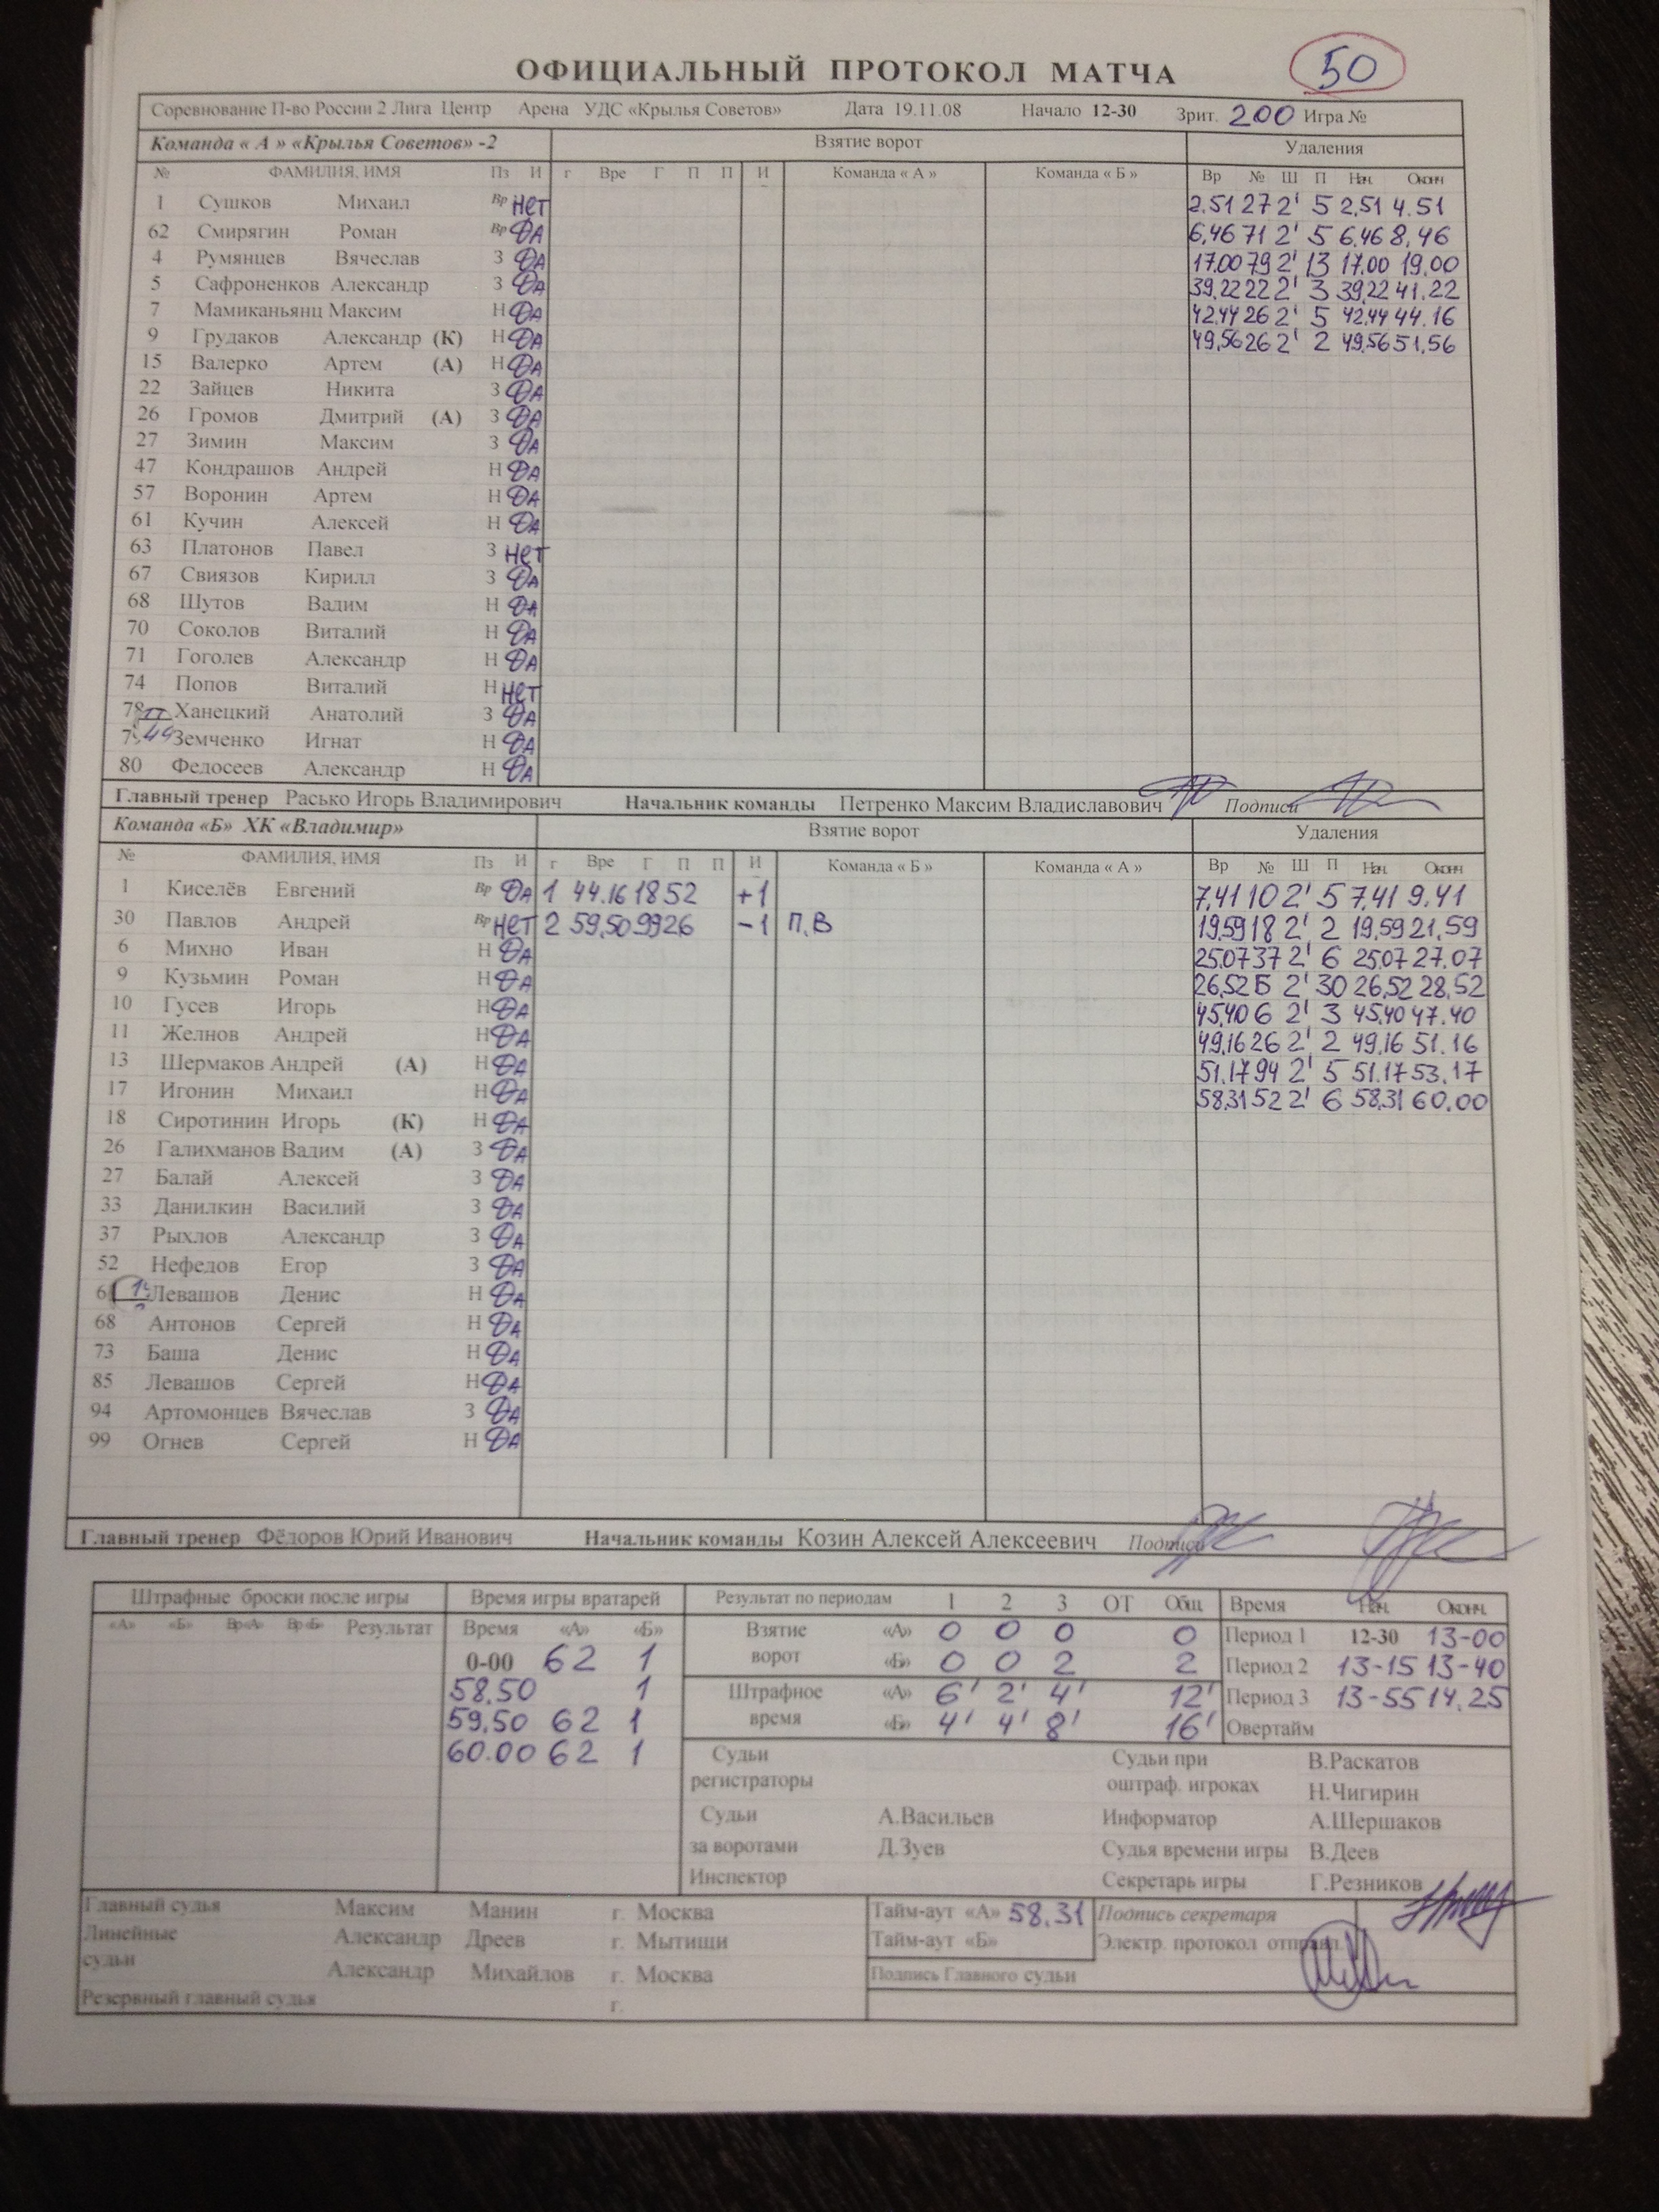 ОФИЦИАЛЬНЫЙ ПРОТОКОЛ МАТЧА 50
Соревнование П-во России 2 Лига Центр Арена УДС «Крылья Советов» Дата 19.11.08 Начало 12-30 Зрит. 200 Игра №
Команда « А » «Крылья Советов» -2 Взятие ворот Удаления
№ ФАМИЛИЯ, ИМЯ Пз И г Вре Г П П И Команда « А » Команда « Б » Вр № Ш П Нач. Оконч
1 Сушков Михаил Вр НЕТ 2.51 27 2' 5 2.51 4.51
62 Смирягин Роман Вр ДА 6,46 71 2' 5 6,46 8,46
4 Румянцев Вячеслав З ДА 17.00 79 2' 13 17.00 19.00
5 Сафроненков Александр З ДА 39,22 22 2' 3 39,22 41.22
7 Мамиканьянц Максим Н ДА 42,44 26 2' 5 42,44 44.16
9 Грудаков Александр (К) Н ДА 49,56 26 2' 2 49,56 51,56
15 Валерко Артем (А) Н ДА
22 Зайцев Никита З ДА
26 Громов Дмитрий (А) З ДА
27 Зимин Максим З ДА
47 Кондрашов Андрей Н ДА
57 Воронин Артем Н ДА
61 Кучин Алексей Н ДА
63 Платонов Павел З НЕТ
67 Свиязов Кирилл З ДА
68 Шутов Вадим Н ДА
70 Соколов Виталий Н ДА
71 Гоголев Александр Н ДА
74 Попов Виталий Н НЕТ
Ханецкий Анатолий З ДА
Земченко Игнат Н ДА
80 Федосеев Александр Н ДА
Главный тренер Расько Игорь Владимирович Начальник команды Петренко Максим Владиславович Подписи
Команда «Б» ХК «Владимир» Взятие ворот Удаления
№ ФАМИЛИЯ, ИМЯ Пз И г Вре Г П П И Команда « Б » Команда « А » Вр № Ш П Нач. Оконч
1 Киселёв Евгений Вр ДА 1 44.16 18 52 +1 7,41 10 2' 5 7,41 9,41
30 Павлов Андрей Вр НЕТ 2 59,50 99 26 -1 П.В 19,59 18 2' 2 19,59 21,59
6 Михно Иван Н ДА 25.07 37 2' 6 25.07 27.07
9 Кузьмин Роман Н ДА 26,52 Б 2' 30 26,52 28,52
10 Гусев Игорь Н ДА 45,40 6 2' 3 45,40 47.40
11 Желнов Андрей Н ДА 49,16 26 2' 2 49,16 51.16
13 Шермаков Андрей (А) Н ДА 51.17 94 2' 5 51.17 53.17
17 Игонин Михаил Н ДА 58,31 52 2' 6 58,31 60.00
18 Сиротинин Игорь (К) Н ДА
26 Галихманов Вадим (А) З ДА
27 Балай Алексей З ДА
33 Данилкин Василий З ДА
37 Рыхлов Александр З ДА
52 Нефедов Егор З ДА
Левашов Денис Н ДА
68 Антонов Сергей Н ДА
73 Баша Денис Н ДА
85 Левашов Сергей Н ДА
94 Артомонцев Вячеслав З ДА
99 Огнев Сергей Н ДА
Главный тренер Фёдоров Юрий Иванович Начальник команды Козин Алексей Алексеевич Подписи
Штрафные броски после игры Время игры вратарей Результат по периодам 1 2 3 ОТ Общ Время Нач. Оконч.
«А» «Б» Вр«А» Вр«Б» Результат Время «А» «Б» Взятие «А» 0 0 0 0 Период 1 12-30 13-00
0-00 62 1 ворот «Б» 0 0 2 2 Период 2 13-15 13-40
58.50 1 Штрафное «А» 6' 2' 4' 12' Период 3 13-55 14.25
59,50 62 1 время «Б» 4' 4' 8' 16' Овертайм
60.00 62 1 Судьи Судьи при В.Раскатов
регистраторы оштраф. игроках Н.Чигирин
Судьи А.Васильев Информатор А.Шершаков
за воротами Д.Зуев Судья времени игры В.Деев
Инспектор Секретарь игры Г.Резников
Главный судья Максим Манин г. Москва Тайм-аут «А» 58.31 Подпись секретаря
Линейные Александр Дреев г. Мытищи Тайм-аут «Б» Электр. протокол отправл.
судьи Александр Михайлов г. Москва Подпись Главного судьи
Резервный главный судья г.